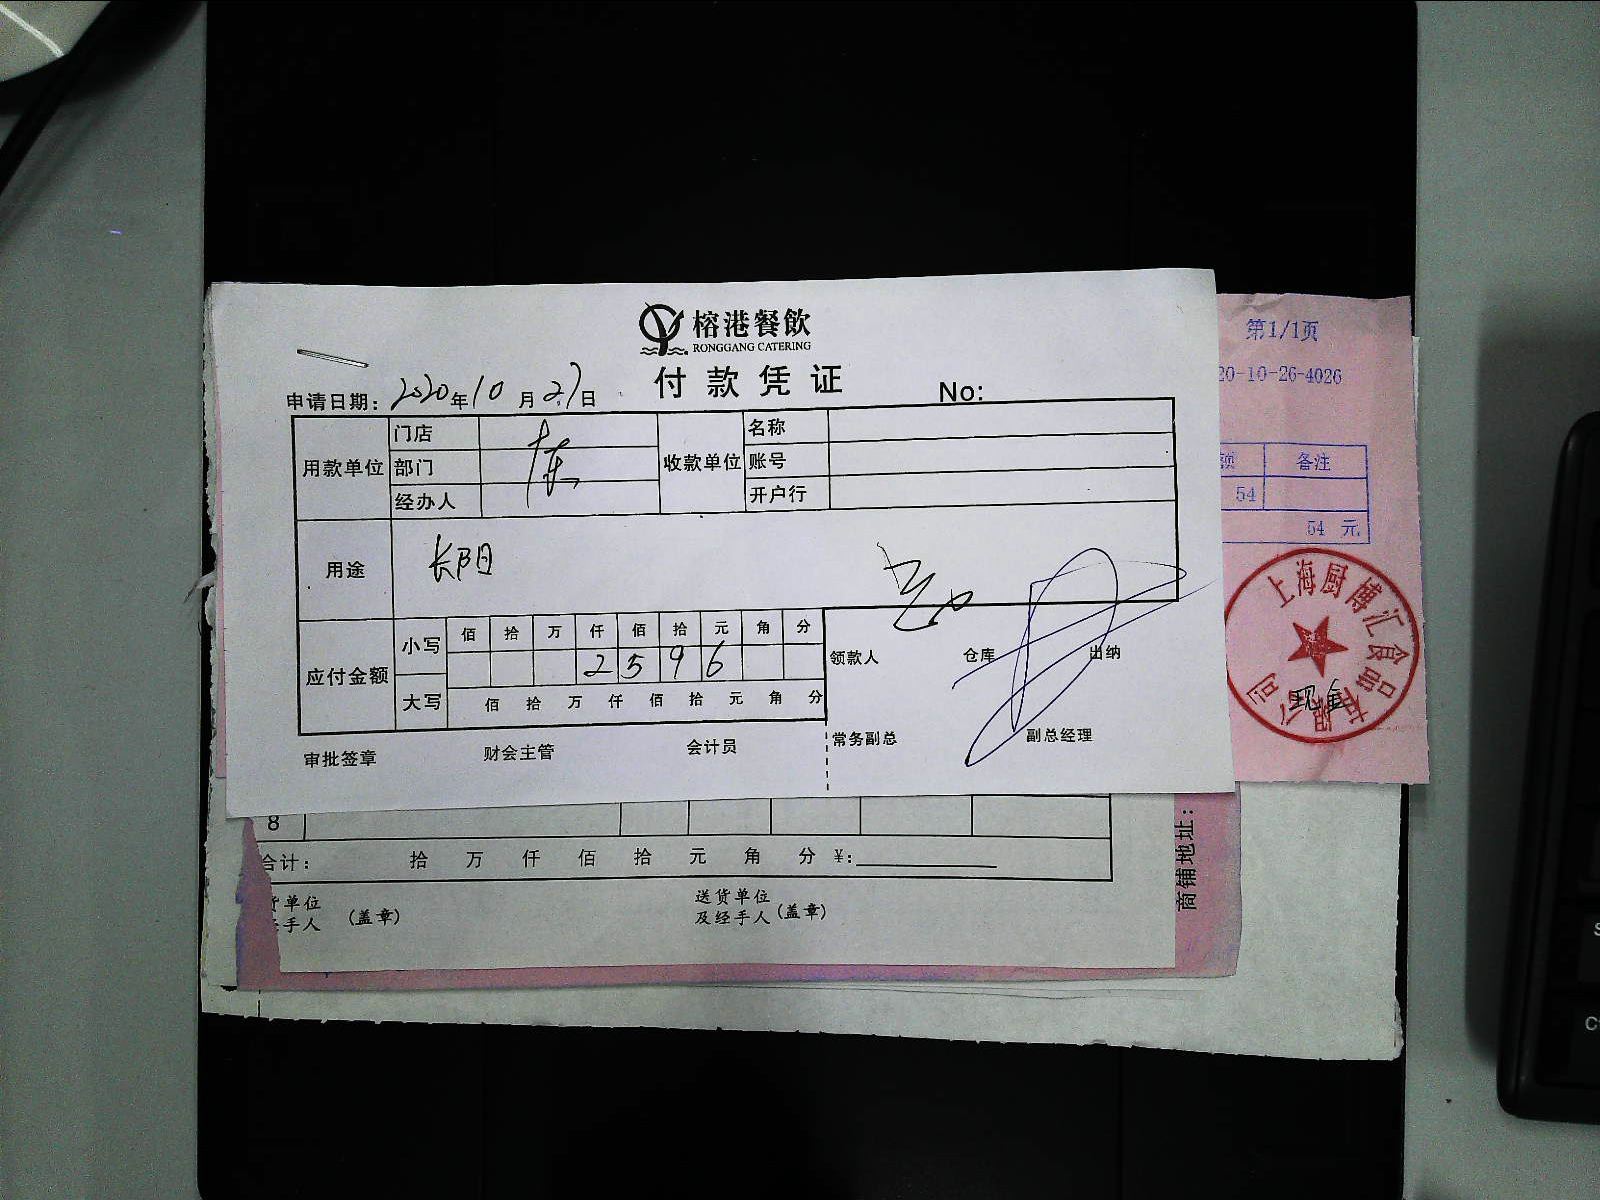 榕港餐飲
RONGGANG CATERING
付款凭证
申请日期: 2020年10月27日 No:
用款单位 门店 收款单位 名称
部门 账号
经办人 开户行
用途 长阳
应付金额 小写 佰 拾 万 仟 佰 拾 元 角 分
2 5 9 6
大写 佰 拾 万 仟 佰 拾 元 角 分
领款人 仓库 出纳
审批签章 财会主管 会计员 常务副总 副总经理
第1/1页
20-10-26-4026
额 备注
54
54 元
上海厨博汇食品有限公司
现金
8
合计: 拾 万 仟 佰 拾 元 角 分 ¥:
货单位 (盖章) 送货单位 (盖章)
手人 及经手人
商铺地址: